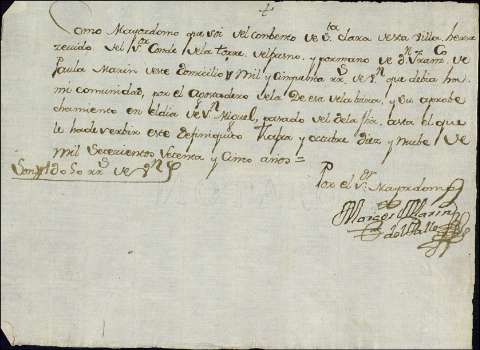 +
Como Mayordomo que soi del combento de Sta clara de esta Villa, he
recivido del Sor Conde de la torre del fresno, y por mano de Dn Franco
de Paula Marin de este Domicilio, Mil y cinquenta rrs de Vn que debia ha
mi comunidad, por el agostadero de la De esa de la, y su aprobe
chamiento en el dia de Sn Miguel, pasado del de la fha, asta el que
le ha de verbir este de finiquito Xalfa y octubre Diez y Nuebe de
Mil Setecientos Setenta y Cinco años=
Son 1 U 050 rrs de Vn
Por el Sr Mayordomo
Marin
del Valle